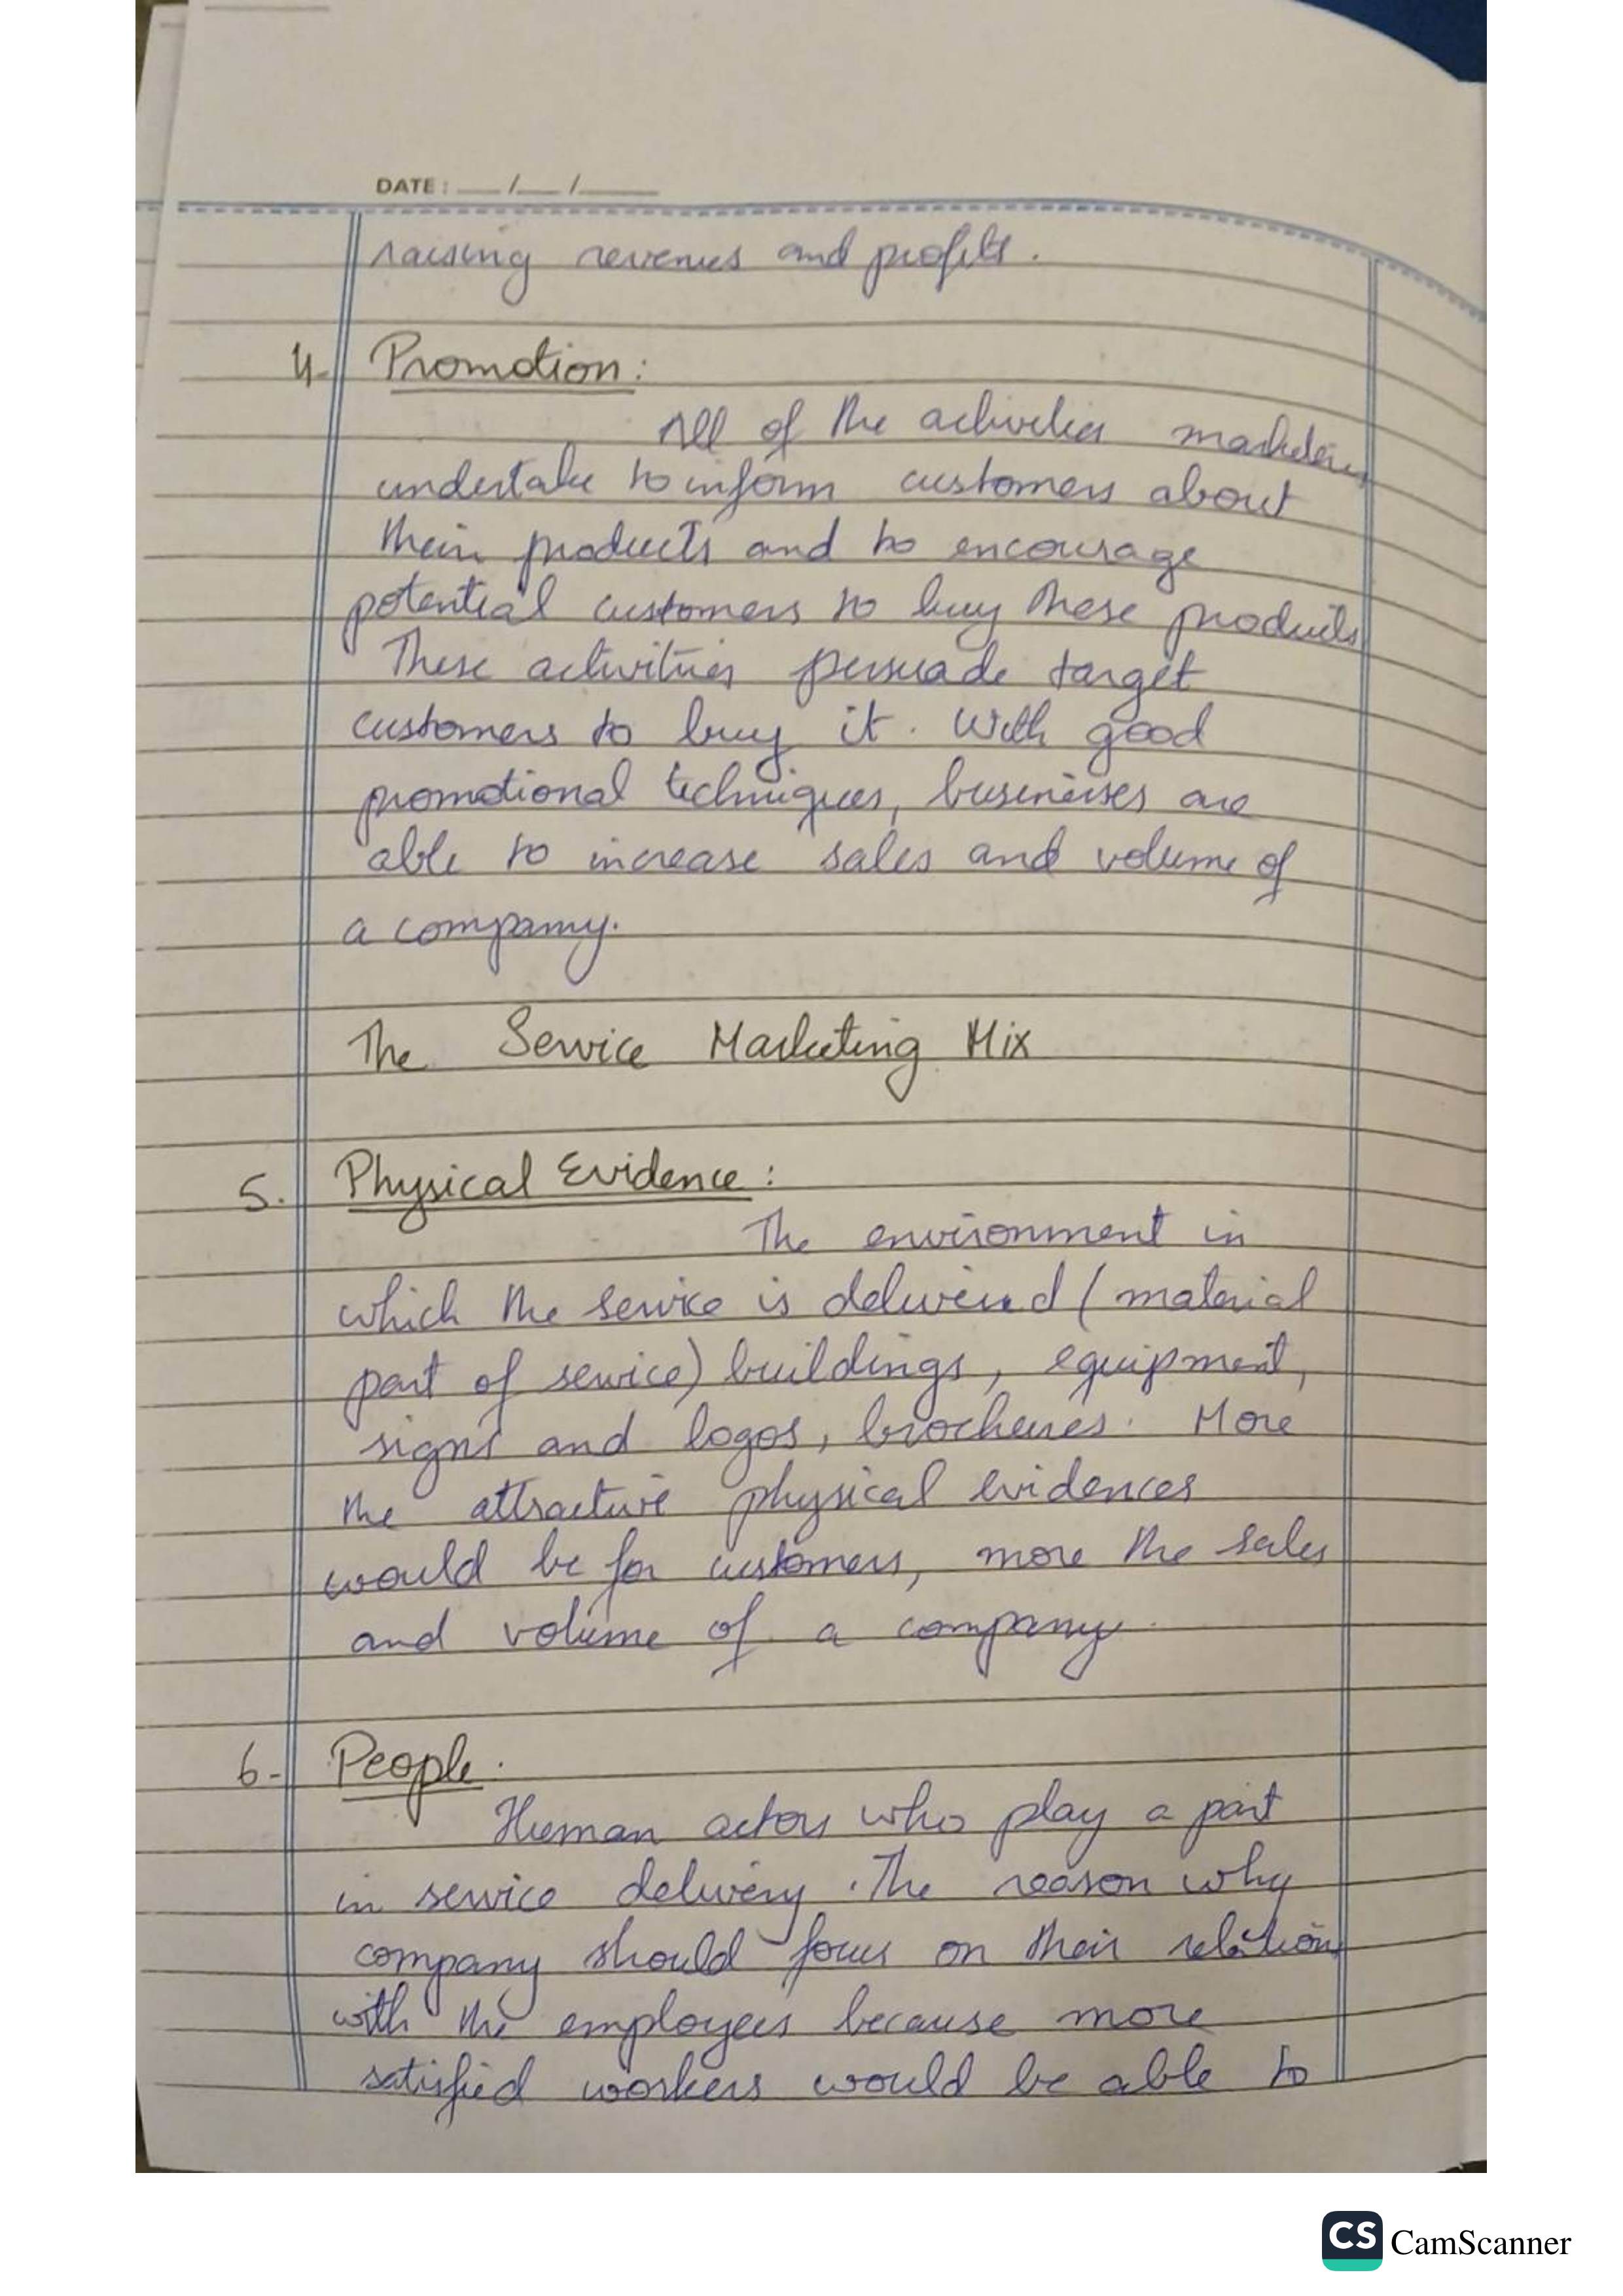 DATE : __ /__ /____
raising revenues and profits.
4. Promotion:
All of the activities marketers
undertake to inform customers about
their products and to encourage
potential customers to buy these products
These activities persuade target
customers to buy it. With good
promotional techniques, businesses are
able to increase sales and volume of
a company.
The Service Marketing Mix
5. Physical Evidence:
The environment in
which the service is delivered (material
part of service) buildings, equipment,
signs and logos, brochures. More
the attractive physical evidences
would be for customers, more the sales
and volume of a company.
6- People.
Human actors who play a part
in service delivery. The reason why
company should focus on their relation
with the employees because more
satisfied workers would be able to
CS CamScanner